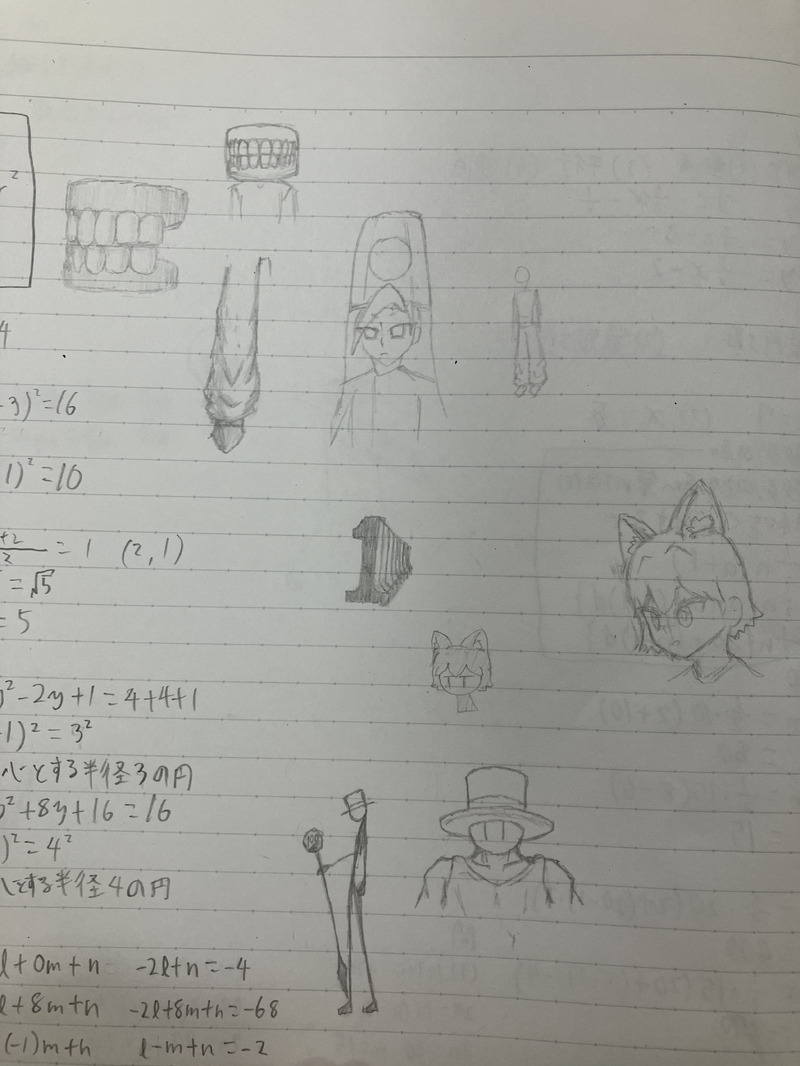 2
4
-3)²=16
1)²=10
+2/2 = 1 (2, 1)
= √5
= 5
y²-2y+1=4+4+1
-1)²=3²
心とする半径3の円
y²+8y+16=16
)²=4²
心とする半径4の円
l+0m+n -2l+n=-4
l+8m+n -2l+8m+n=-68
(-1)m+n l-m+n=-2
1